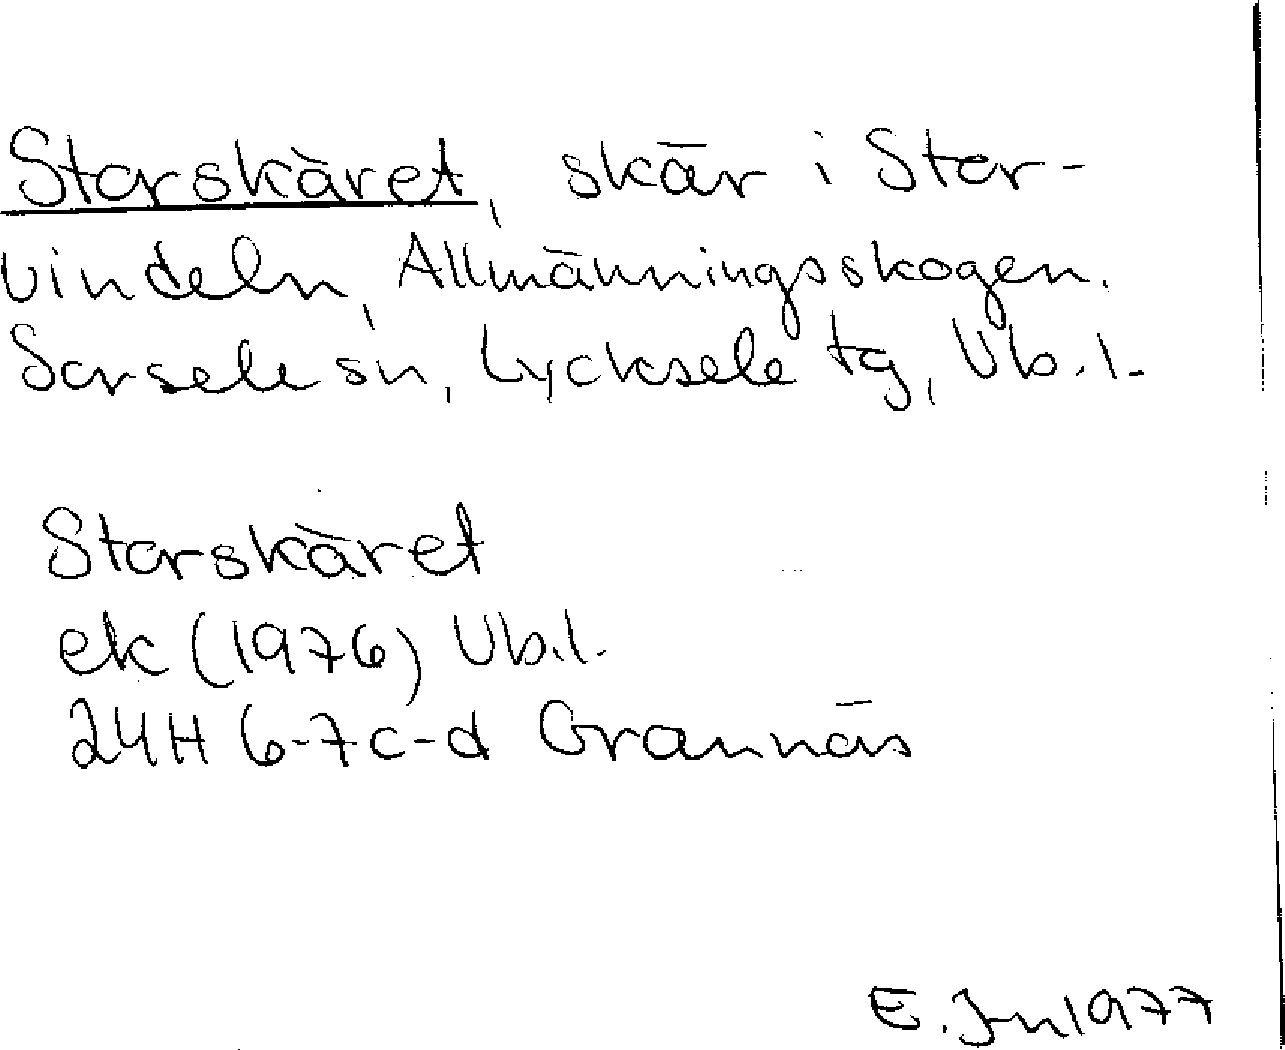 Storskäret, skär i Stor-
vindeln, Allmänningsskogen.
Sorsele sn, Lycksele tg, Vb.l.
Storskäret
ek (1976) Vb.l.
24H 6-7c-d Grannäs
E. Jn 1977